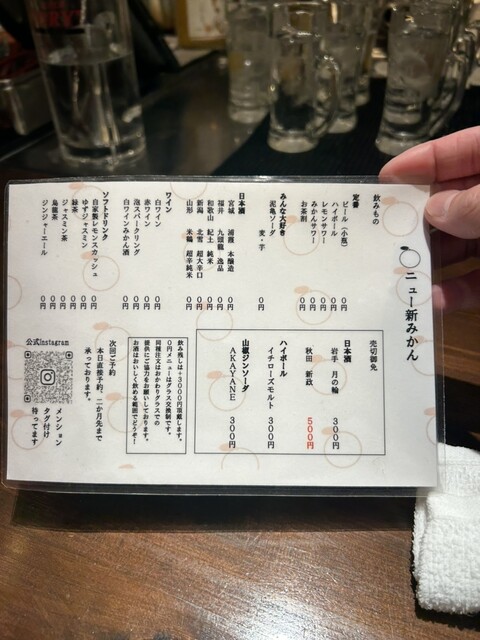 ニュー新みかん
飲みもの
定番
ビール（小瓶） 0円
ハイボール 0円
レモンサワー 0円
みかんサワー 0円
お茶割 0円
みんな大好き
泥亀ソーダ 麦・芋 0円
日本酒
宮城 浦霞 本醸造 0円
福井 九頭龍 逸品 0円
和歌山 紀土 純米 0円
新潟 北雪 超大辛口 0円
山形 米鶴 超辛純米 0円
ワイン
白ワイン 0円
赤ワイン 0円
泡スパークリング 0円
白ワインみかん酒 0円
ソフトドリンク
自家製レモンスカッシュ 0円
ゆずジャスミン 0円
緑茶 0円
ジャスミン茶 0円
烏龍茶 0円
ジンジャーエール 0円
売切御免
日本酒
岩手 月の輪 300円
秋田 新政 500円
ハイボール
イチローズモルト 300円
山椒ジンソーダ
AKAYANE 300円
飲み残しは+3000円頂戴します。
0円メニューはグラス交換制です。
同種注文はおかわりグラスでの
提供にご協力をお願いしております。
お酒はおいしく飲める範囲でどうぞ！
次回ご予約
本日直接予約、二か月先まで
承っております。
公式Instagram
メンション
タグ付け
待ってます